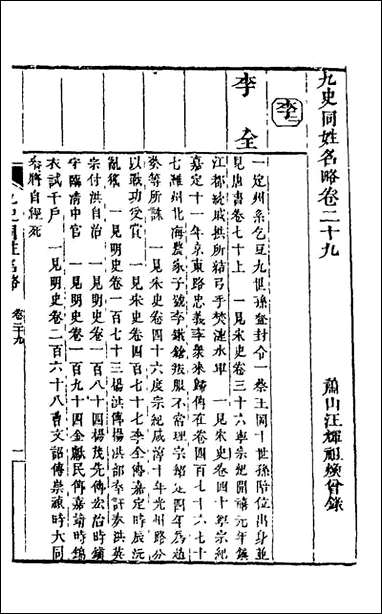 九史同姓名略卷二十九
蕭山汪輝祖煥曾錄
李
李全
一定州条乞豆九世孫登封令一蔡王岡十世孫陪位出身並
見唐書卷七十上　一見宋史卷三十六寧宗紀開禧元年鎮
江都統戚拱所結弓手焚漣水軍　一見宋史卷四十寧宗紀
嘉定十一年京東路忠義李衆來歸傳在卷四百七十六七十
七濰州北海農家子號李鐵鎗叛服不常理宗紹定四年為趙
葵等所誅　一見宋史卷四十六度宗紀咸淳十年光州路分
以戰功受賞　一見宋史卷四百七十七李全傳嘉定時辰沅
亂獠　一見明史卷一百七十三楊洪傳楊洪部李討泰洪英
宗付洪自治　一見明史卷一百八十四楊茂先傳宏治時鎮
守臨清中官　一見明史卷一百九十四金獻民傳嘉靖時錦
衣試千戶　一見明史卷二百六十八曹文詔傳崇禎時大同
參將自經死
九史同姓名略
卷二十九
一